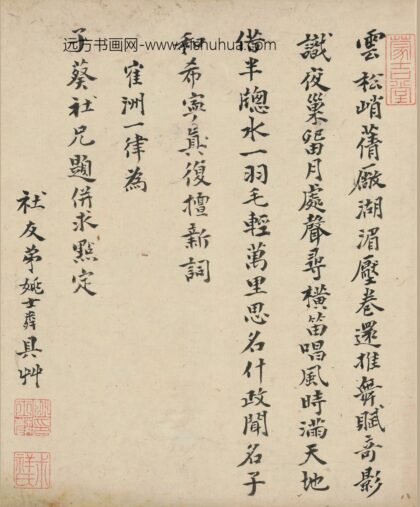 远方书画网-www.yfshuhua.com
雲松峭蒨廠湖湄壓卷還推舞賦奇影
識夜巢留月處聲尋橫笛唱風時滿天地
借半牕水一羽毛輕萬里思名什政聞名子
和希寅真復擅新詞
寉洲一律為
子葵社兄題併求點定
社友弟姚士粦具艸